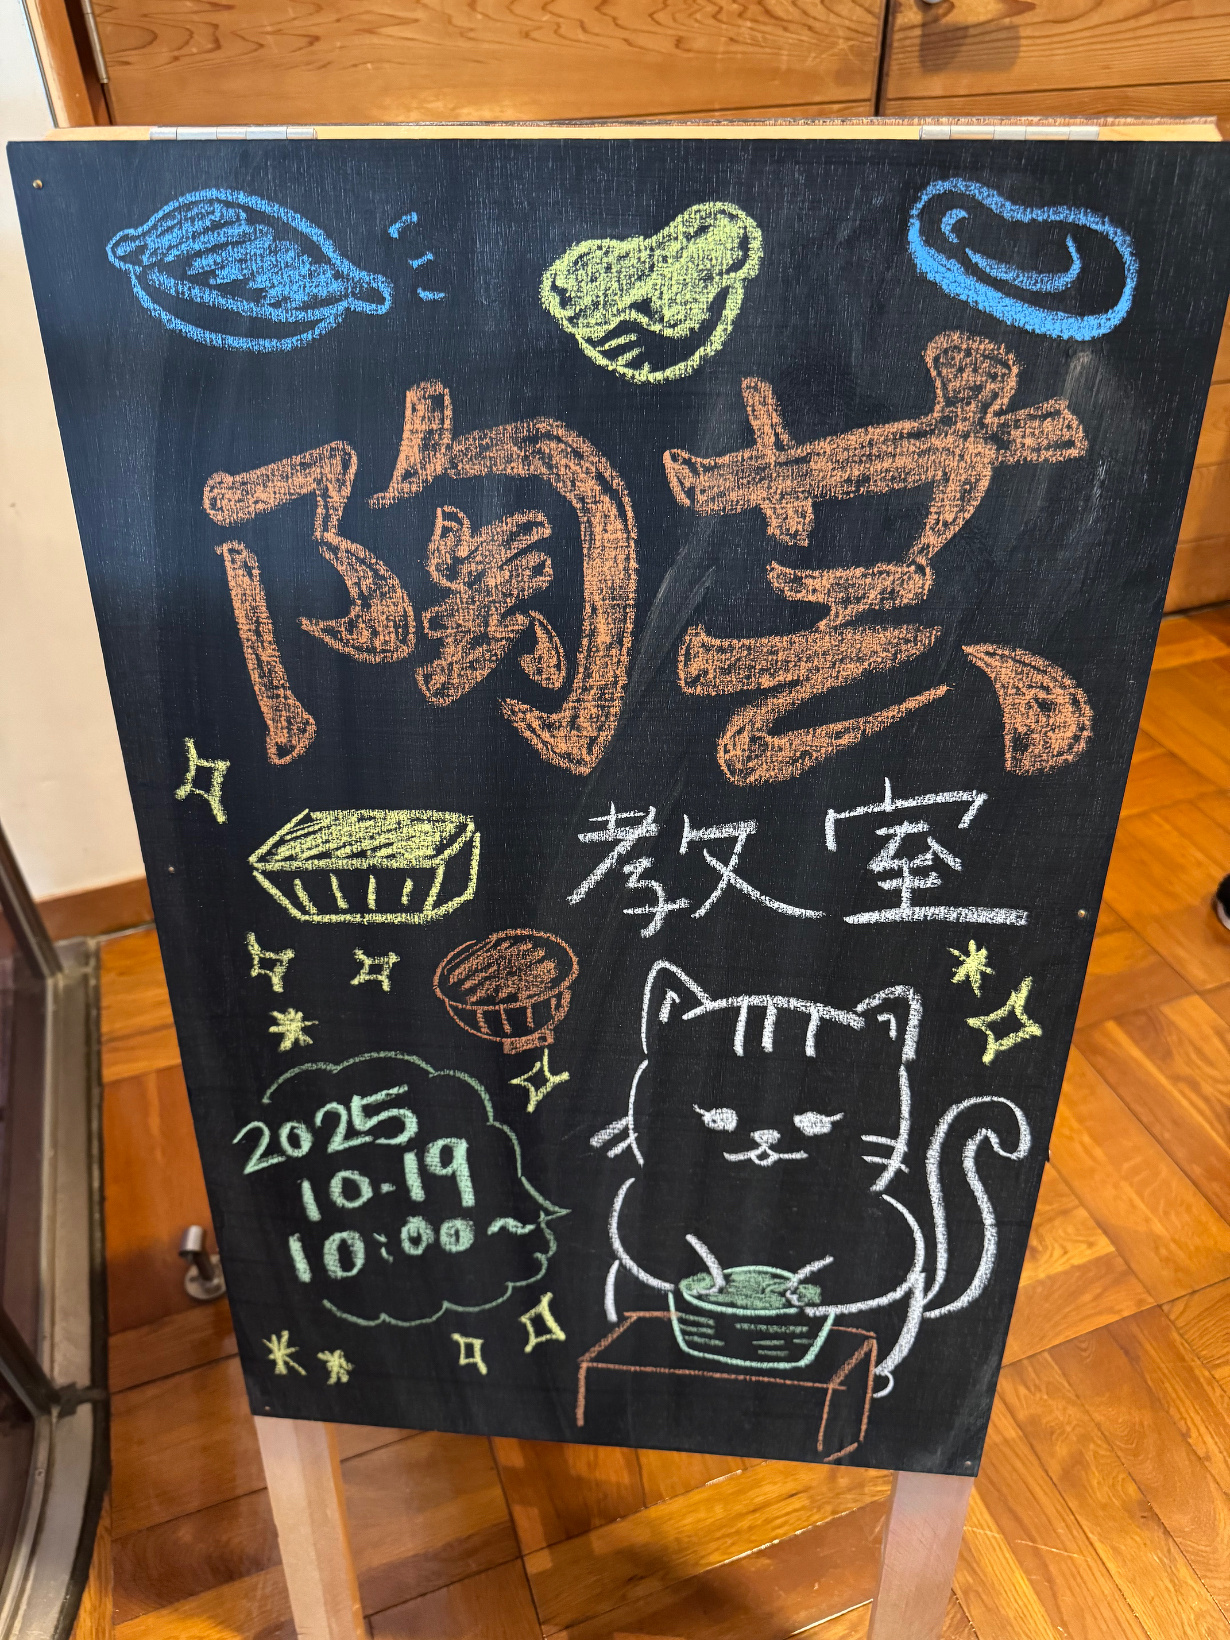 陶芸
教室
2025
10.19
10:00~